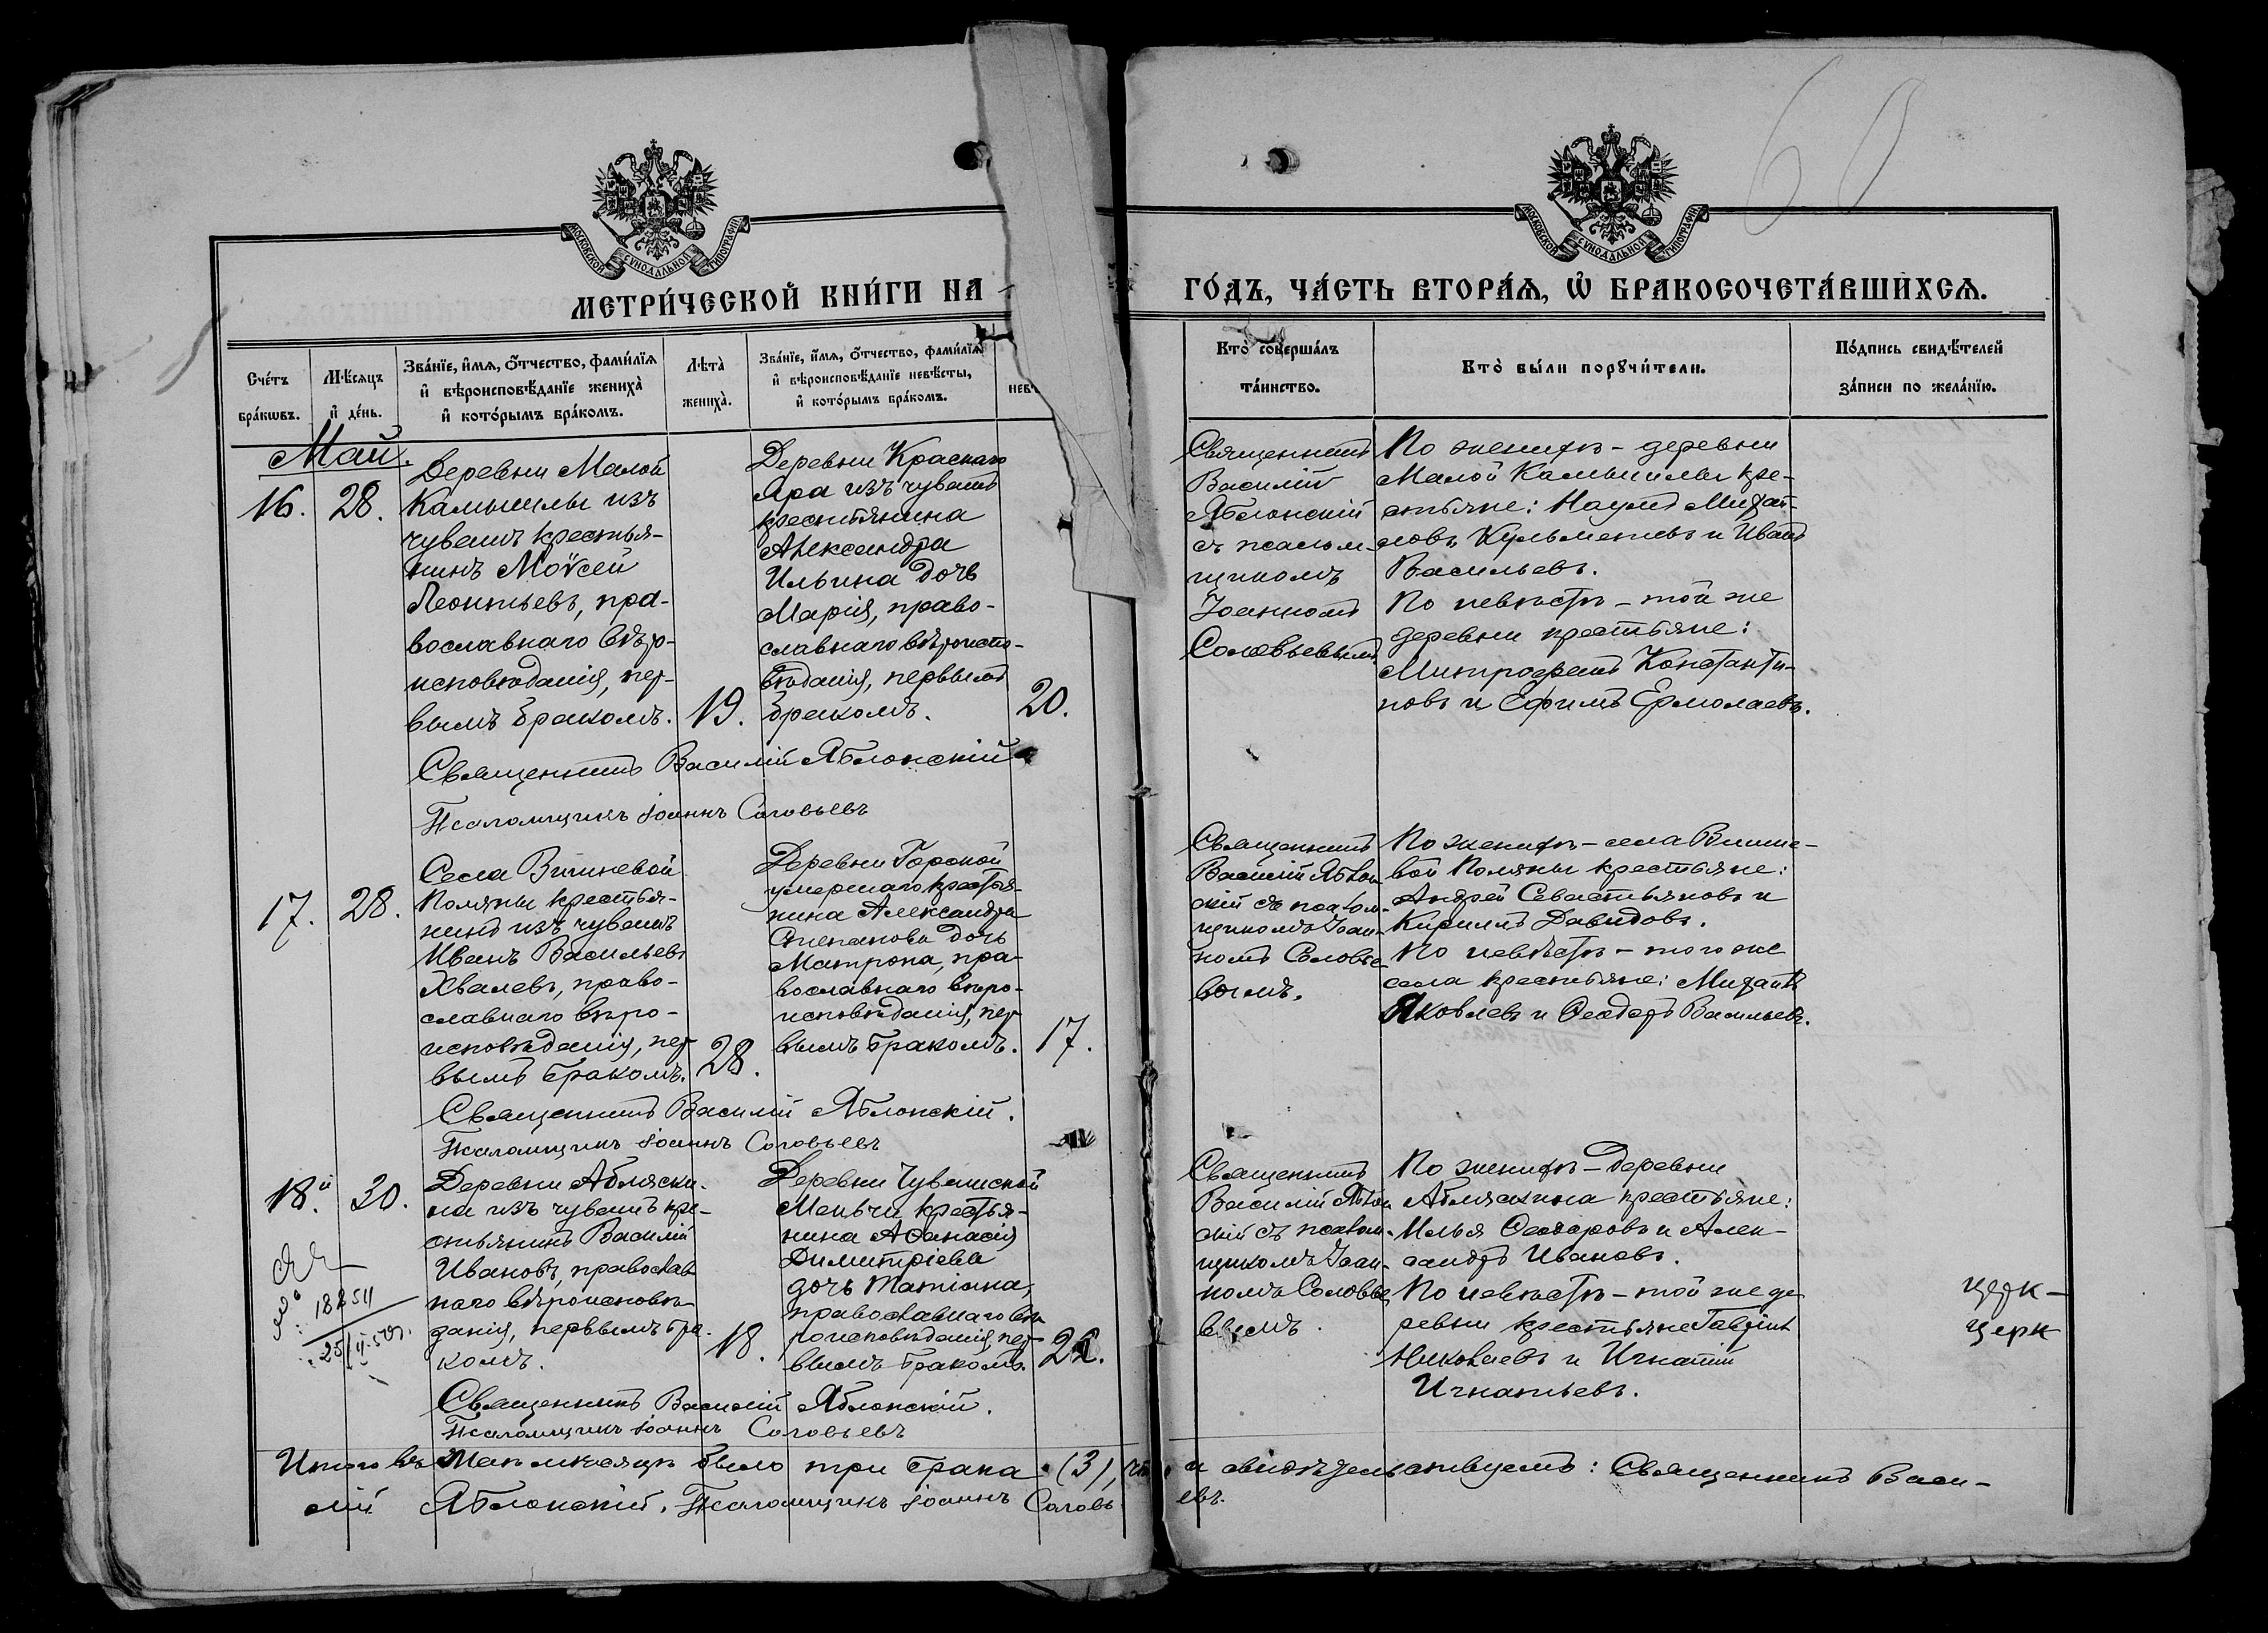 60
МОСКОВСКОЙ СѴНОДАЛЬНОЙ ТИПОГРАФІИ
МОСКОВСКОЙ СѴНОДАЛЬНОЙ ТИПОГРАФІИ
МЕТРИ́ЧЕСКОЙ КНИ́ГИ НА
ГО́ДЪ, ЧА́СТЬ ВТОРА́Я, Ѡ БРАКОСОЧЕТА́ВШИХСЯ.
Сче́тъ
бра́кѡвъ.
Мѣсяцъ
и де́нь.
Зва́нїе, и́мя, о́тчество, фами́лїя
и вѣроисповѣ́данїе жениха̀
и кото́рымъ бра́комъ.
Лѣта̀
жениха̀.
Зва́нїе, и́мя, о́тчество, фами́лїя
и вѣроисповѣ́данїе невѣ́сты,
и кото́рымъ бра́комъ.
нев
Кто̀ соверша́лъ
та́инство.
Кто̀ бы́ли порꙋчи́тели.
По́дпись свидѣ́телей
за́писи по жела́нїю.
Май.
16.
28.
Деревни Малой
Камышлы изъ
чувашъ крестья-
нинъ Моѵсей
Леонтьевъ, пра-
вославнаго вѣро-
исповѣданія, пер-
вымъ бракомъ.
19.
Деревни Краснаго
Яра изъ чувашъ
крестьянина
Александра
Ильина дочь
Марія, право-
славнаго вѣроиспо-
вѣданія, первымъ
бракомъ.
20.
Священникъ
Василій
Яблонскій
съ псалом-
щикомъ
Іоанномъ
Соловьевымъ.
По женихѣ - деревни
Малой Камышлы кре-
стьяне: Наумъ Михай-
ловъ Кульметевъ и Иванъ
Васильевъ.
По невѣстѣ - той же
деревни крестьяне:
Митрофанъ Константи-
новъ и Ефимъ Ермолаевъ.
Священникъ Василій Яблонскій
Псаломщикъ Іоаннъ Соловьевъ
17.
28.
Села Вишневой
Поляны крестья-
нинъ изъ чувашъ
Иванъ Васильевъ
Хвалевъ, право-
славнаго вѣро-
исповѣданія, пер
вымъ бракомъ.
28.
Деревни Горской
умершаго крестья-
нина Александра
Степанова дочь
Матрона, пра-
вославнаго вѣро-
исповѣданія, пер
вымъ бракомъ.
17.
Священникъ
Василій Яблон
скій съ псалом-
щикомъ Іоан-
номъ Соловье
вымъ.
По женихѣ - села Вишне-
вой Поляны крестьяне:
Андрей Севастьяновъ и
Кириллъ Давидовъ.
По невѣстѣ - того же
села крестьяне: Михаилъ
Яковлевъ и Ѳеодоръ Васильевъ.
Священникъ Василій Яблонскій.
Псаломщикъ Іоаннъ Соловьевъ
18.й
30.
Деревни Абляски-
на изъ чувашъ кре-
стьянинъ Василій
Ивановъ, православ
наго вѣроисповѣ-
данія, первымъ бра-
комъ.
18.
Деревни Чувашской
Менчи крестья-
нина Аѳанасія
Димитріева
дочь Татіана,
православнаго вѣ
роисповѣданія, пер
вымъ бракомъ.
Священникъ
Василій Яблон
скій съ псалом-
щикомъ Іоан-
номъ Соловье
вымъ.
По женихѣ - деревни
Абляскина крестьяне:
Илья Ѳеодоровъ и Алек-
сандръ Ивановъ.
По невѣстѣ - той же де
ревни крестьяне Гавріилъ
Николаевъ и Игнатій
Игнатьевъ.
церк -
церк
Священникъ Василій Яблонскій.
Псаломщикъ Іоаннъ Соловьевъ
Итого въ Маѣ мѣсяцѣ было три брака (3), и свидѣтельствуемъ: Священникъ Васи-
лій Яблонскій. Псаломщикъ Іоаннъ Соловьевъ.